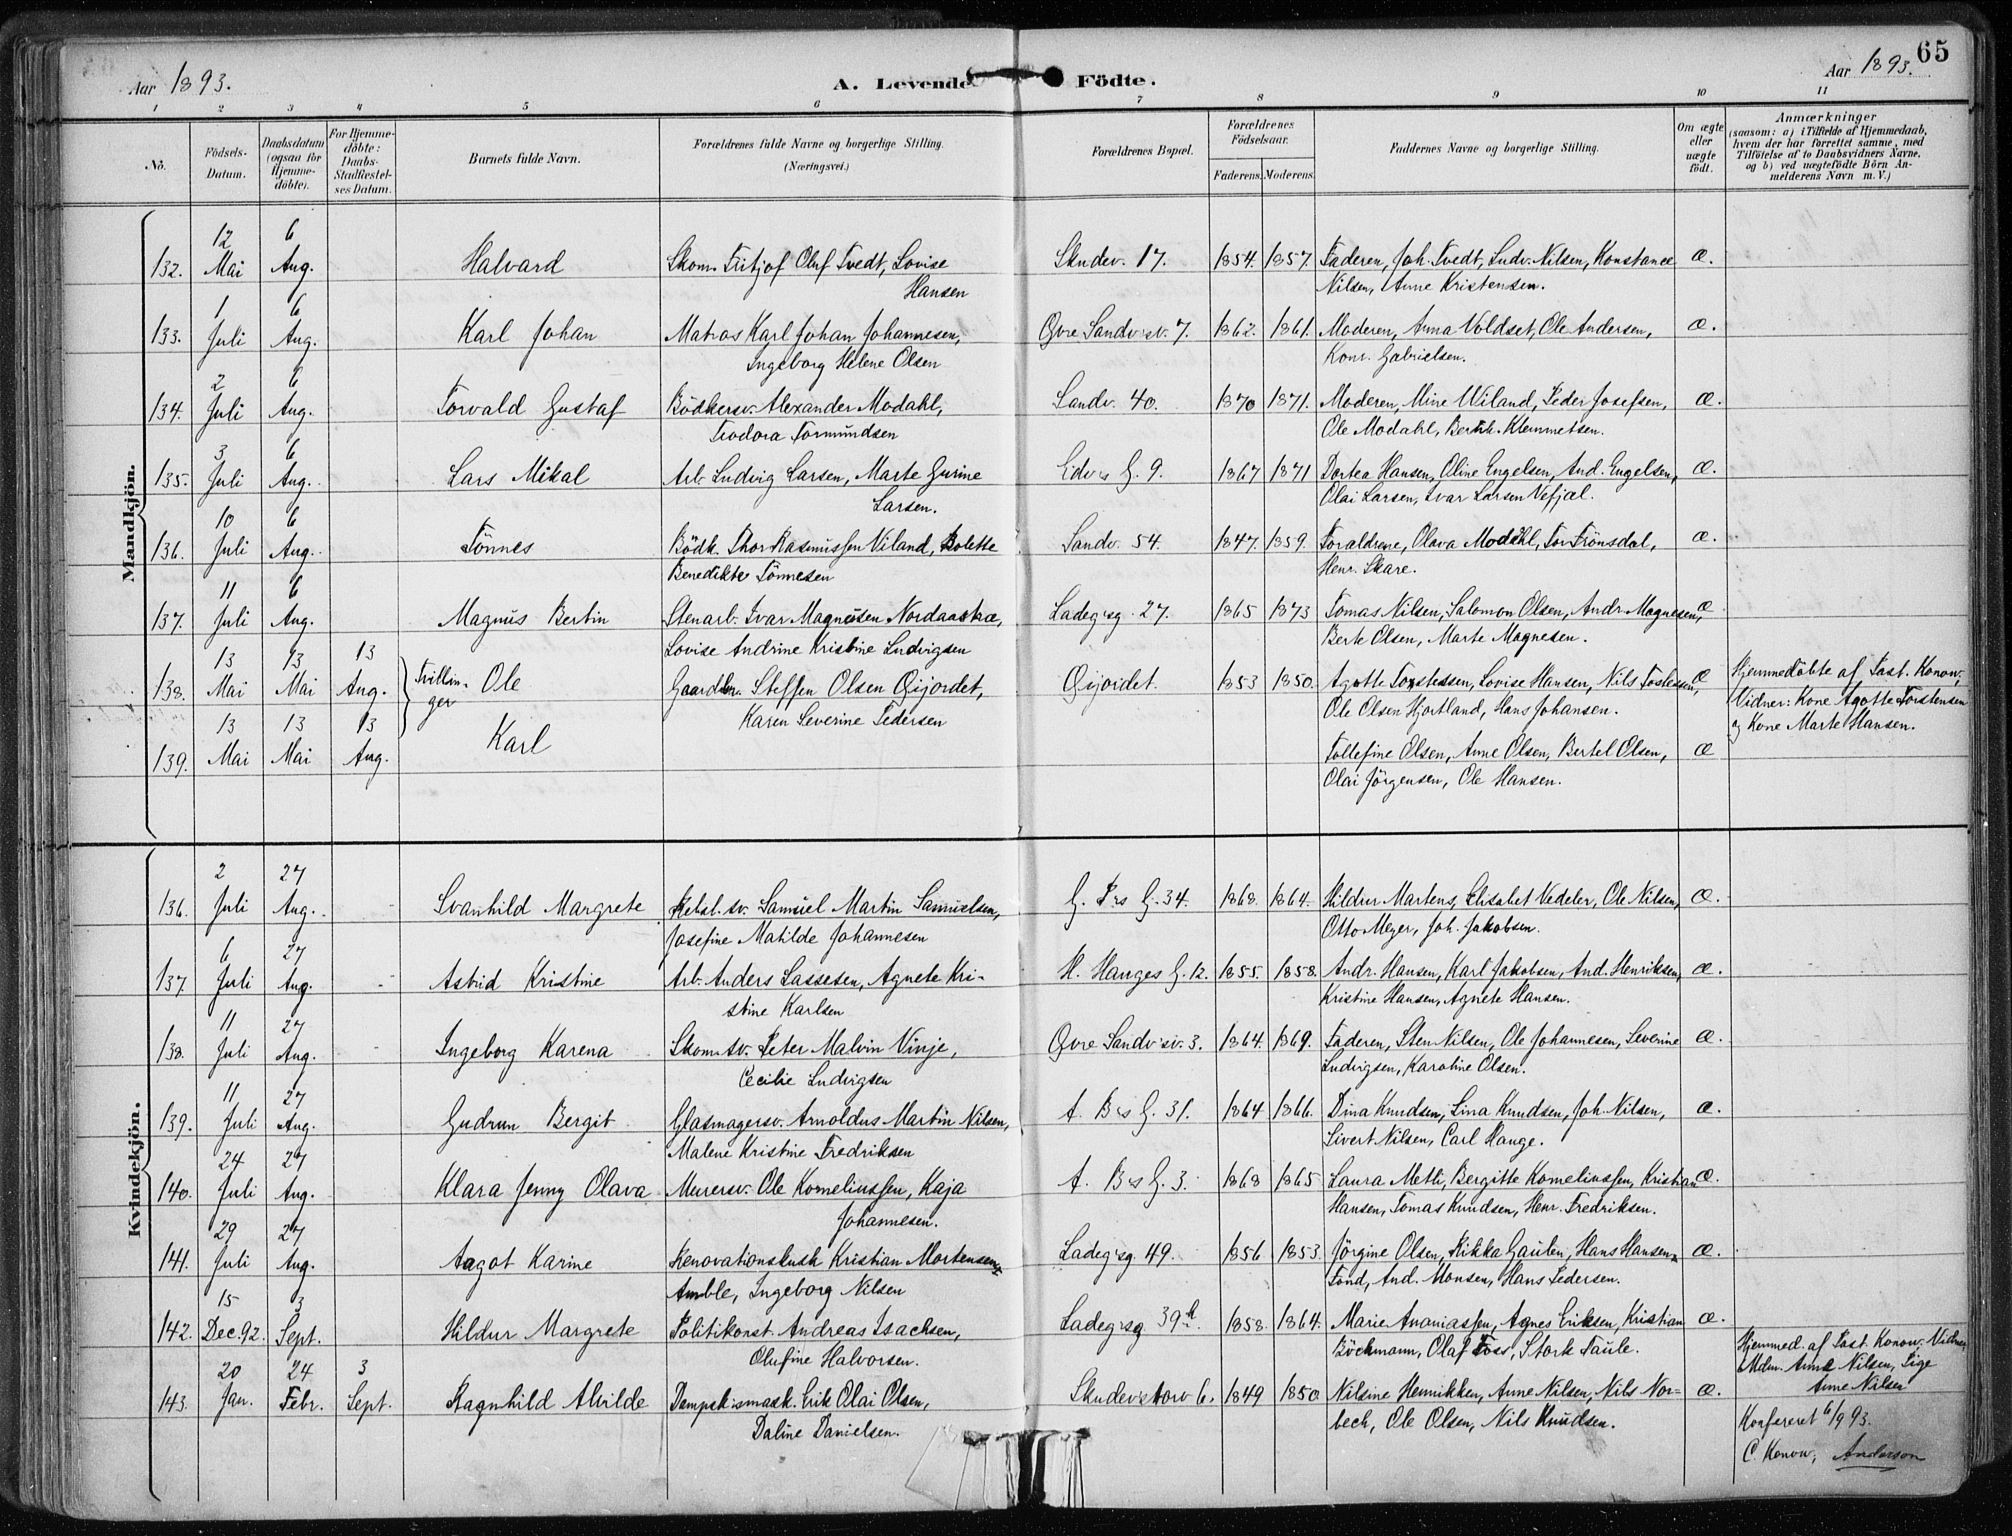 Aar 1893.
A. Levende Födte.
Aar 1893. 65
1 2 3 4 5 6 7 8 9 10 11
No.
Födsels-Datum.
Daabsdatum (ogsaa for Hjemme-döbte).
For Hjemme-döbte: Daabs-Stadfæstel-ses Datum.
Barnets fulde Navn.
Forældrenes fulde Navne og borgerlige Stilling. (Næringsvei.)
Forældrenes Bopæl.
Forældrenes Födselsaar.
Faderens. Moderens.
Faddernes Navne og borgerlige Stilling.
Om ægte eller uægte födt.
Anmærkninger
(saasom: a) i Tilfælde af Hjemmedaab, hvem der har forrettet samme, med Tilföielse af to Daabsvidners Navne, og b) ved uægtefödte Börn An-melderens Navn m. V.)
Mandkjön.
132. 12 Mai 6 Aug. Halvard Skom. Fritjof Oluf Tvedt, Lovise Skndev. 17. 1854. 1857. Faderen, Joh. Tvedt, Ludv. Nilsen, Konstance æ.
Hansen Nilsen, Anne Kristensen.
133. 1 Juli 6 Aug. Karl Johan Matros Karl Johan Johannesen, Qvre Sandv'sv. 7. 1862. 1861. Moderen, Anna Voldset, Ole Andersen, æ.
Ingeborg Helene Olsen Konr. Gabrielsen.
134. 2 Juli 6 Aug. Torvald Gustaf Bödkersv. Alexander Modahl, Sandv. 40. 1870 1871. Moderen, Mine Wiland, Peder Josefsen, æ.
Teodora Tormundsen Ole Modahl, Berth. Klemmetsen.
135. 3 Juli 6 Aug. Lars Mikal Arb. Ludvig Larsen, Marte Gurine Edvs G. 9. 1867 1871 Dortea Hansen, Oline Engelsen, And. Engelsen, æ.
Larsen. Olai Larsen, Ivar Larsen Vefjæl.
136. 10 Juli 6 Aug. Tönnes Bödk. Thor Rasmussen Viland, Bolette Sandv. 54. 1847. 1859. Foraldrene, Olava Modahl, Tor Trönsdal, æ.
Benedikte Tönnesen Henr. Skare.
137. 11 Juli 6 Aug. Magnus Bertin Stenarb. Ivar Magnesen Nordaastræ, Ladeg'sg. 27. 1865 1873 Tomas Nilsen, Salomon Olsen, Andr. Magnesen, æ
Lovise Andrine Kristine Ludvigsen Berte Olsen, Marte Magnesen.
138. 13 Mai 13 Mai 13 Aug. Tvillin-ger Ole Gaardbr. Steffen Olsen Gijordet, Gijordet. 1853 1850. Agotte Torstensen, Lovise Hansen, Nils Tostensen, æ Hjemmedöbte af Past. Konow,
Karen Severine Pedersen Ole Olsen Hjortland, Hans Johansen. Vidner: Kone Agotte Torstensen
og Kone Marte Hansen.
139. 13 Mai 13 Mai 13 Aug. Karl Tollefine Olsen, Anne Olsen, Bertel Olsen, æ
Olai Jörgensen, Ole Hansen.
Kvindekjön.
136. 2 Juli 27 Aug. Svanhild Margrete Rebsl. sv. Samuel Martin Samuelsen, G. Prs G. 34. 1868. 1864. Hildur Martens, Elisabet Vedeler, Ole Nilsen, æ.
Josefine Matilde Johannesen Otto Meyer, Joh. Jakobsen.
137. 6 Juli 27 Aug. Astrid Kristine Arb. Anders Lassesen, Agnete Kri- H. Hauges G. 12. 1855. 1858. Andr. Hansen, Karl Jakobsen, And. Henriksen, æ.
stine Karlsen Kristine Hansen, Agnete Hansen.
138. 11 Juli 27 Aug. Ingeborg Karena Skom.sv. Peter Malvin Vinje, Qvre Sandv'sv. 3. 1864. 1869. Faderen, Sten Nilsen, Ole Johannesen, Severine æ.
Cecilie Ludvigsen Ludvigsen, Karoline Olsen.
139. 11 Juli 27 Aug. Gudrun Bergit Glasmagersv. Arnoldus Martin Nilsen, A. Bs G. 31. 1864 1866. Dina Knudsen, Lina Knudsen, Joh. Nilsen, æ.
Malene Kristine Fredriksen Sivert Nilsen, Carl Hauge.
140. 24 Juli 27 Aug. Klara Jenny Olava Murersv. Ole Korneliussen, Kaja A. Bs G. 3. 1868 1865 Laura Metli, Bergitte Korneliussen, Kristian æ.
Johannesen. Hansen, Tomas Knudsen, Henr. Fredriksen.
141. 29 Juli 27 Aug. Aagot Karine Renovationskusk Kristian Mortensen Ladeg'sg 49. 1856 1853. Jörgine Olsen, Rikka Gaulen, Hans Hansen æ.
Amble, Ingeborg Nilsen Tond, And. Monsen, Hans Pedersen.
142. 15 Dec. 92. 3 Sept. Hildur Margrete Politikonst. Andreas Isachsen, Ladeg'sg 39 1858. 1864. Marie Ananiassen, Agnes Eriksen, Kristian æ.
Olufine Halvorsen. Böckmann, Olaf Foss, Stork Taule.
143. 20 Jan. 24 Febr. 3 Sept. Ragnhild Alvilde Dampskismask. Erik Olai Olsen, Skndevstorv 6. 1849 1850 Nilsine Henrikken, Anne Nilsen, Nils Nor- æ. Hjemmed. af Past. Konow. Vidner
Daline Danielsen. bech, Ole Olsen, Nils Knudsen. Mdm. Anne Nilsen, Pige
Anne Nilsen
Konfereret 6/9 93.
C. Konow, Anderson